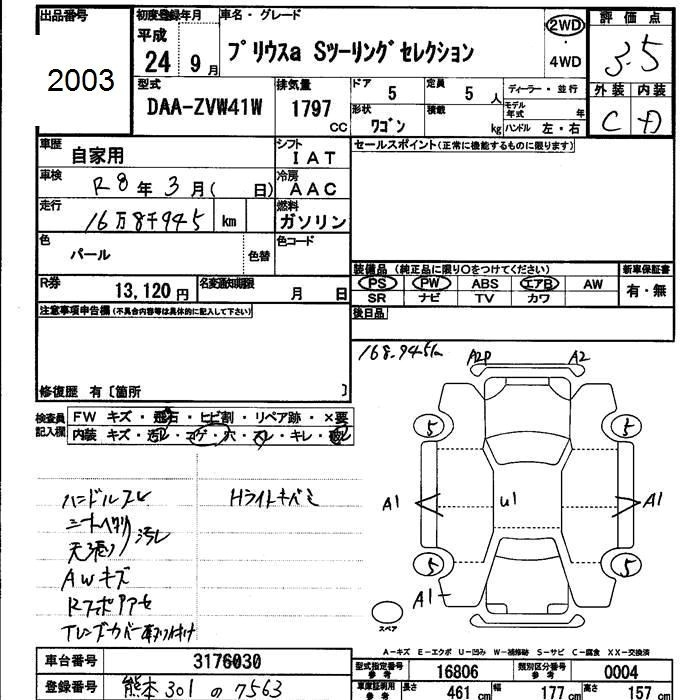 出品番号
2003
初度登録年月
平成
24年 9月
車名・グレード
プリウスa Sツーリングセレクション
2WD
・
4WD
評価点
3.5
外装 内装
C D
型式
DAA-ZVW41W
排気量
1797
CC
ドア
5
定員
5 人
形状
ワゴン
積載
kg
ディーラー・並行
モデル年式 年
ハンドル 左・右
車歴
自家用
シフト
IAT
車検
R8年 3月( 日)
冷房
AAC
走行
16万8千945 km
燃料
ガソリン
色
パール
色替
色コード
R券
13,120円
名変通知期限
月 日
セールスポイント(正常に機能するものに限ります)
装備品(純正品に限り○をつけてください)
PS PW ABS エアB AW
SR ナビ TV カワ
新車保証書
有・無
後日品
注意事項申告欄(不具合内容等は具体的に記入して下さい)
修復歴 有〔箇所 〕
検査員記入欄
FW キズ・飛石・ヒビ割・リペア跡・×要
内装 キズ・汚レ・コゲ・穴・スレ・キレ・
ハンドルスレ
シートヘタリ
天張り 汚レ
AWキズ
Hライトキバミ
168.945km
A2P A2
5 5
A1 U1 A1
5 5
A1
スペア
A-キズ E-エクボ U-凹み W-補修跡 S-サビ C-腐食 XX-交換済
車台番号
3176030
登録番号
熊本 301 の 7563
型式指定番号
参考
16806
類別区分番号
参考
0004
車庫証明用
参考
長さ
461 cm
幅
177 cm
高さ
157 cm